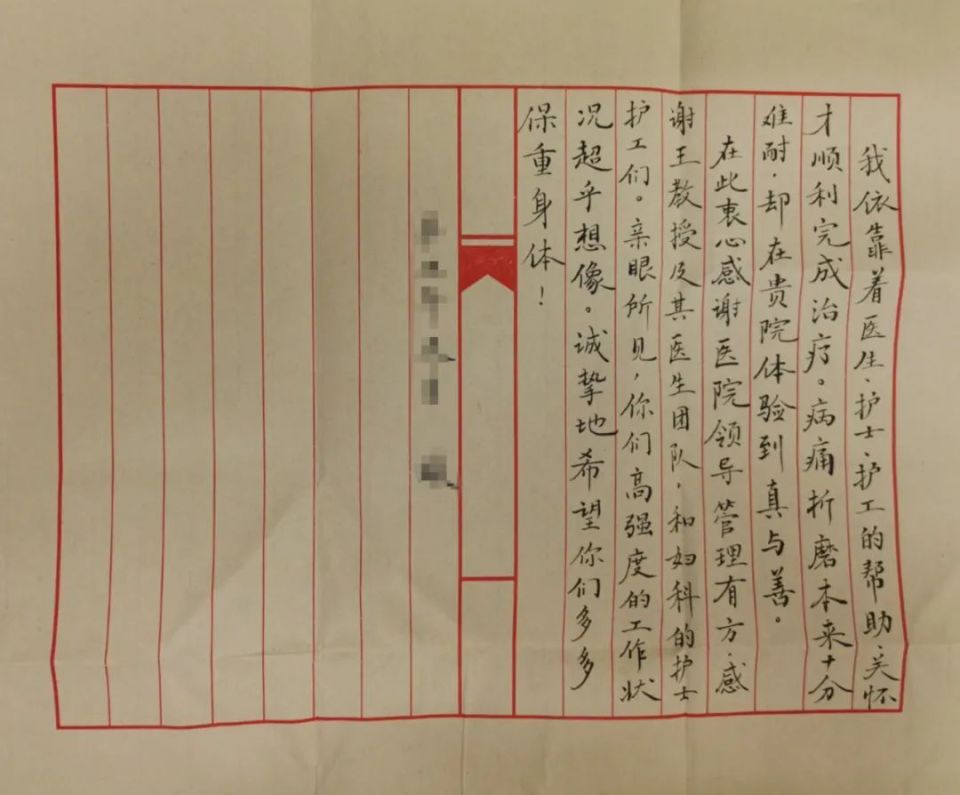 我依靠着医生、护士、护工的帮助、关怀
才顺利完成治疗。病痛折磨本来十分
难耐，却在贵院体验到真与善。
在此衷心感谢医院领导管理有方，感
谢王教授及其医生团队，和妇科的护士
护工们。亲眼所见，你们高强度的工作状
况超乎想像。诚挚地希望你们多多
保重身体！